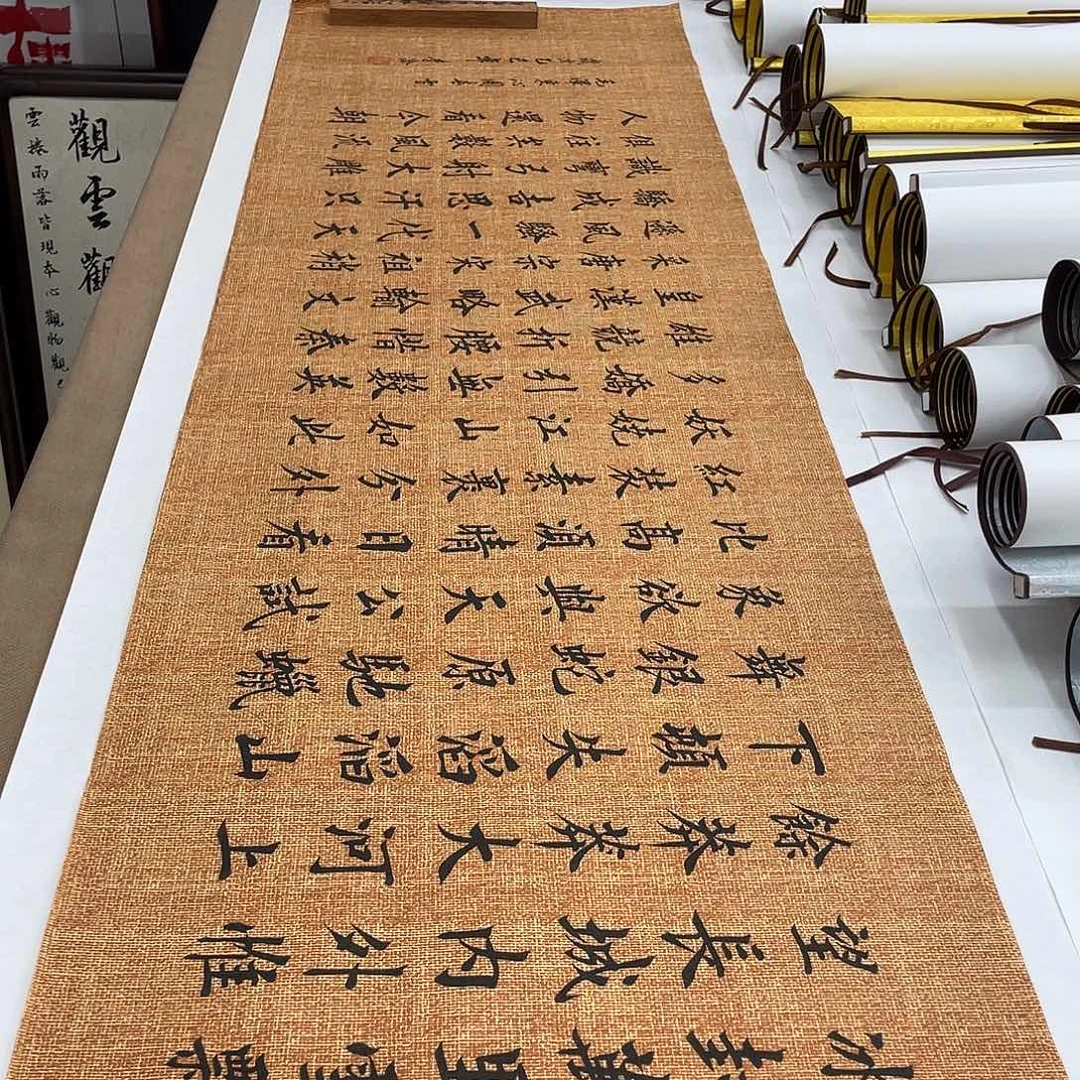 冰封萬里雪飄
望長城內外惟
餘莽莽大河上
下頓失滔滔山
舞銀蛇原馳蠟
象欲與天公試
比高須晴日看
紅裝素裹分外
妖嬈江山如此
多嬌引無數英
雄競折腰惜秦
皇漢武略輸文
采唐宗宋祖稍
遜風騷一代天
驕成吉思汗只
識彎弓射大雕
俱往矣數風流
人物還看今朝
毛澤東沁園春雪
觀雲觀
雲捲雨落皆現本心觀物觀